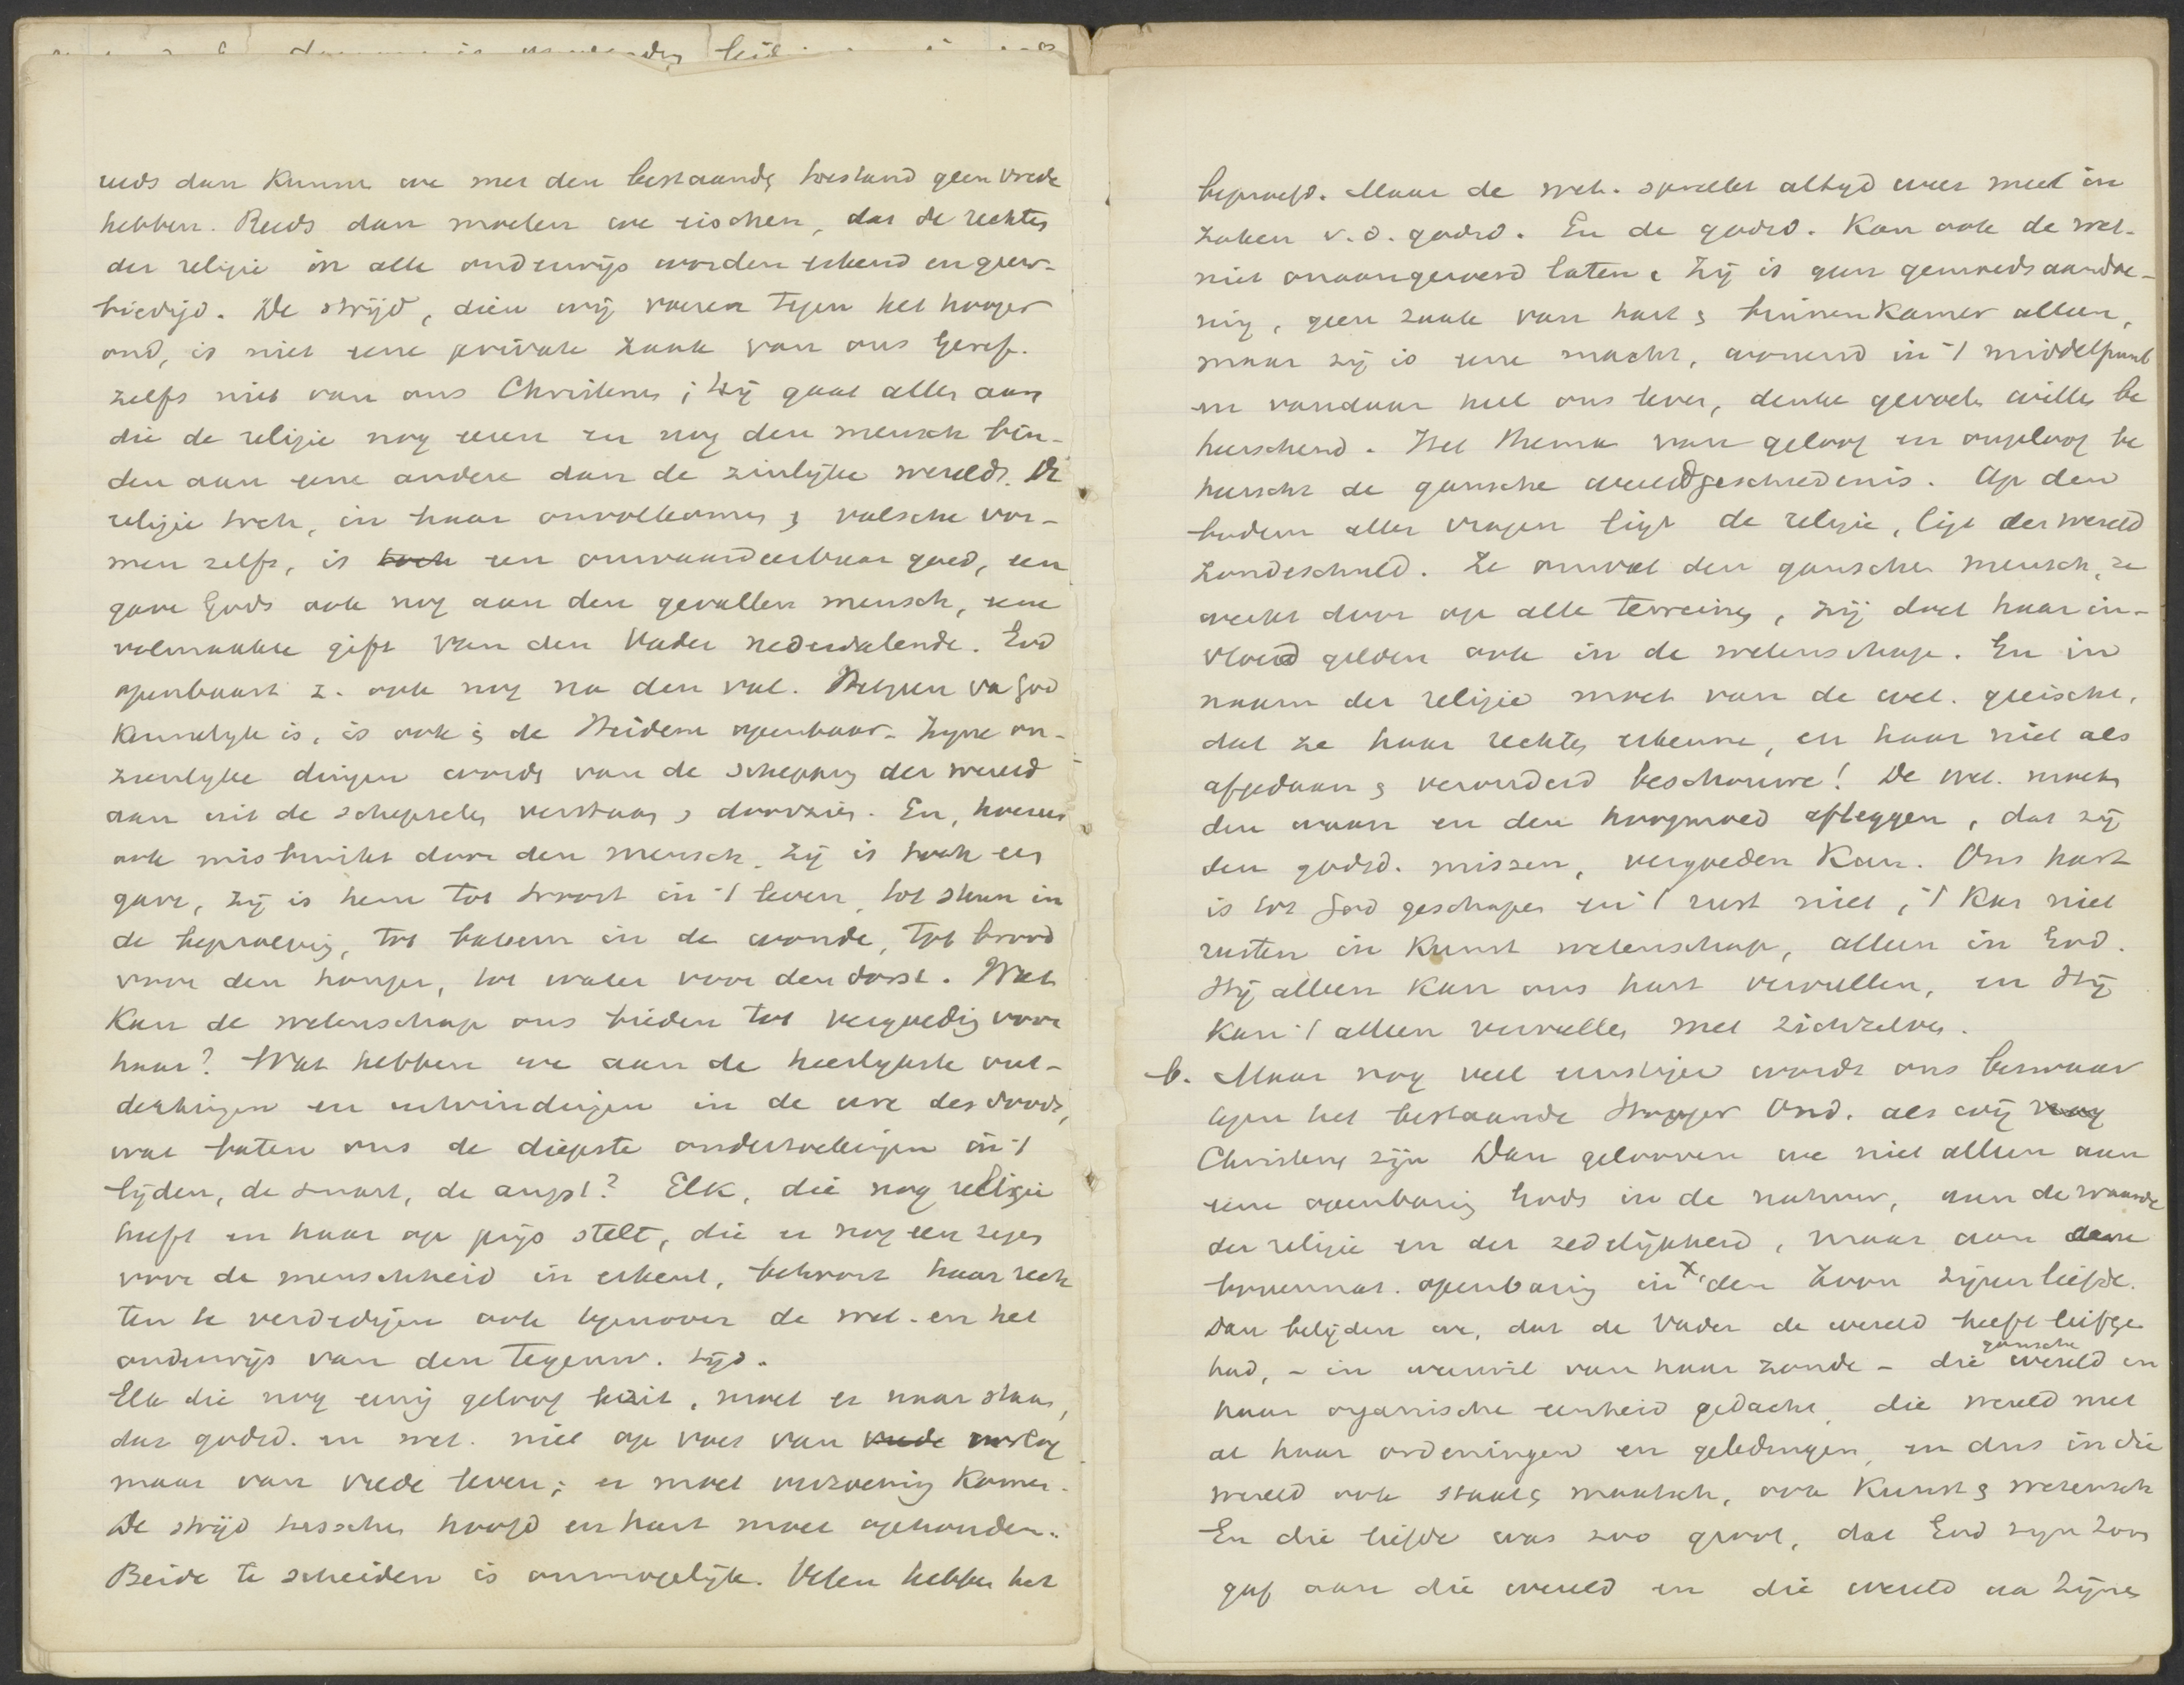 reeds dan kunnen we met den bestaande toestand geen vrede
hebben. Reeds dan moeten we eischen, dat de rechten
der religie in alle onderwijs worden erkend en geeer-
biedigd. De strijd, dien wij voeren tegen het hooger
ond, is niet eene private zaak van ons Geref.
zelfs niet van ons Christenen; Hij gaat allen aan
die de religie nog eeren en nog den mensch bin-
den aan eene andere dan de zinlijke wereld. De
religie toch, in haar onvolkomen & valsche vor-
men zelfs, is toch een onwaardeerbaar goed, een
gave Gods ook nog aan den gevallen mensch, eene
volmaakte gift van den Vader nederdalende. God
openbaart z. ook nog na den val. Hetgeen va God
kennelijk is, is ook in de Heidenen openbaar. Zijne on-
zienlijke dingen worden van de schepping der wereld
aan uit de schepselen verstaan & doorzien. En, hoezeer
ook misbruikt door den mensch, zij is toch een
gave, zij is hem tot troost in 't leven, tot steun in
de beproeving, tot balsem in de wonde, tot brood
voor den honger, tot water voor den dorst. Wat
kan de wetenschap ons bieden tot vergoeding voor
haar? Wat hebben we aan de heerlijkste ont-
dekkingen en uitvindingen in de ure des doods,
wat baten ons de diepste onderzoekingen in 't
lijden, de smart, de angst? Elk, die nog religie
heeft en haar op prijs stelt, die er nog een zegen
voor de menschheid in erkent, behoort haar rech
ten te verdedigen ook tegenover de wet. en het
onderwijs van den tegenw. tijd.
Elk die nog eenig geloof bezit, moet er naar staan,
dat godsd. en wet. niet op voet van vrede oorlog
maar van vrede leven; er moet verzoening komen.
De strijd tusschen hoofd en hart moet ophouden.
Beide te scheiden is onmogelijk. Velen hebben het
beproefd. Maar de wet. spreekt altijd weer meê in
zaken v. d. godsd. En de godsd. kan ook de wet.
niet onaangeroerd laten. Zij is geen gemoedsaandoe-
ning, geen zaak van hart & binnenkamer alleen,
maar zij is eene macht, wonend in 't middelpunt
en vandaar heel ons leven, denken gevoelen willen be
heerschend. Het thema van geloof en ongeloof be
heerscht de gansche wereldgeschiedenis. Op den
bodem aller vragen ligt de religie, ligt der wereld
zondeschuld. Ze omvat den ganschen mensch, ze
werkt door op alle terreinen, zij doet haar in-
vloed gelden ook in de wetenschap. En in
naam der religie moet van de wet. geeischt,
dat ze haar rechten erkenne, en haar niet als
afgedaan & verouderd beschouwe! De wet. moet
den waan en den hoogmoed afleggen, dat zij
den godsd. missen, vergoeden kan. Ons hart
is tot God geschapen en 't rust niet, 't kan niet
rusten in kunst wetenschap, alleen in God.
Hij alleen kan ons hart vervullen, en Hij
kan 't alleen vervullen met zichzelven.
b. Maar nog veel ernstiger wordt ons bezwaar
tegen het bestaande Hooger Ond. als wij nog
Christenen zijn. Dan gelooven we niet alleen aan
eene openbaring Gods in de natuur, aan de waarde
der religie en der zedelijkheid, maar aan eene
bovennat. openbaring in X, den Zoon zijner liefde.
Dan belijden we, dat de Vader de wereld heeft liefge
had, - in weerwil van haar zonde - die gansche wereld in
haar organische eenheid gedacht, die wereld met
al haar ordeningen en geledingen, en dus in die
wereld ook staat & maatsch, ook kunst & wetensch
En die liefde was zoo groot, dat God zijn Zoon
gaf aan die wereld en die wereld aa Zijnen